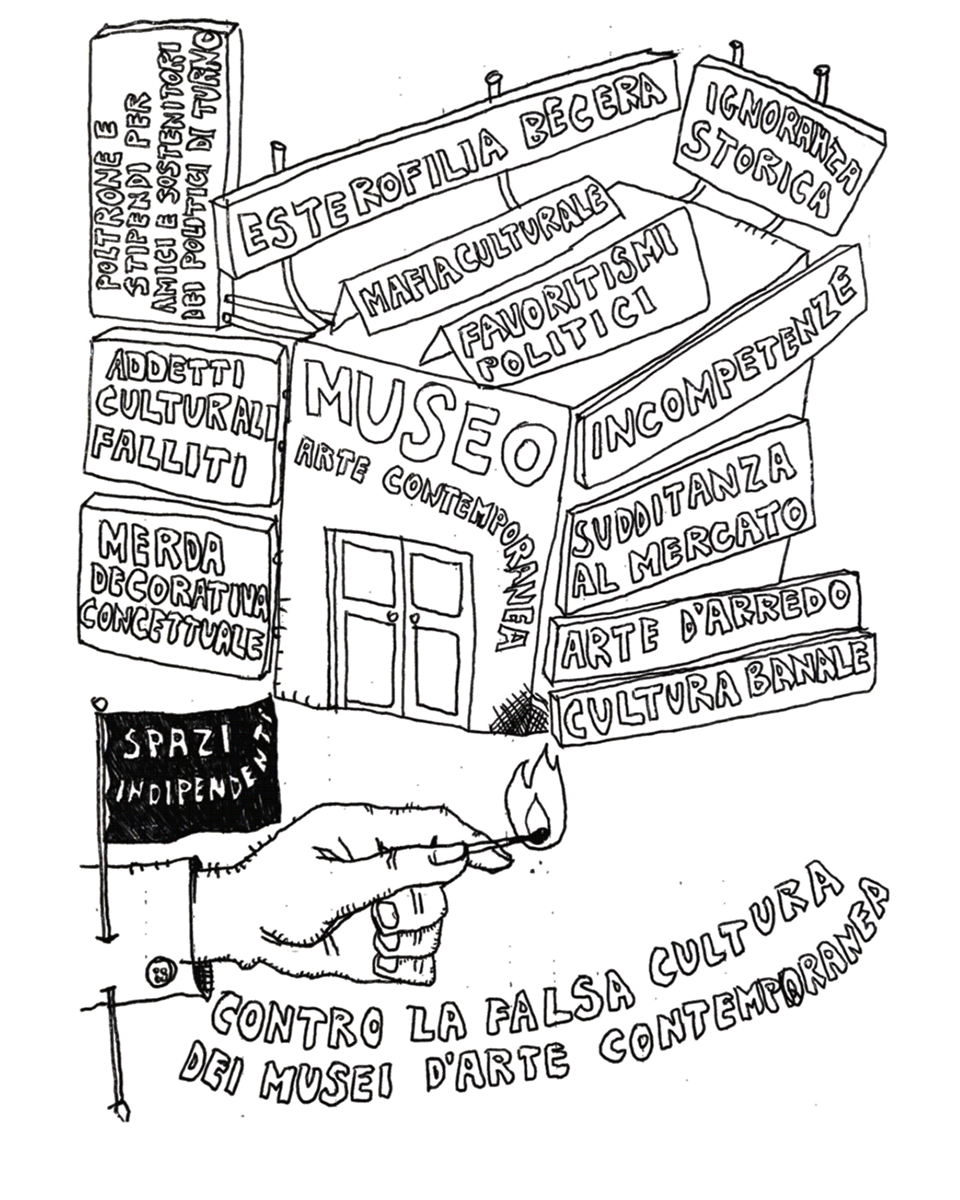 POLTRONE E
STIPENDI PER
AMICI E SOSTENITORI
DEI POLITICI DI TURNO
ESTEROFILIA BECERA
IGNORANZA
STORICA
MAFIA CULTURALE
FAVORITISMI
POLITICI
INCOMPETENZE
ADDETTI
CULTURALI
FALLITI
MUSEO
ARTE CONTEMPORANEA
SUDDITANZA
AL MERCATO
MERDA
DECORATIVA
CONCETTUALE
ARTE D'ARREDO
CULTURA BANALE
SPAZI
INDIPENDENTI
CONTRO LA FALSA CULTURA
DEI MUSEI D'ARTE CONTEMPORANEA